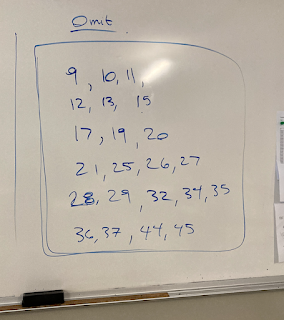 Omit
9, 10, 11,
12, 13, 15
17, 19, 20
21, 25, 26, 27
28, 29, 32, 34, 35
36, 37, 44, 45